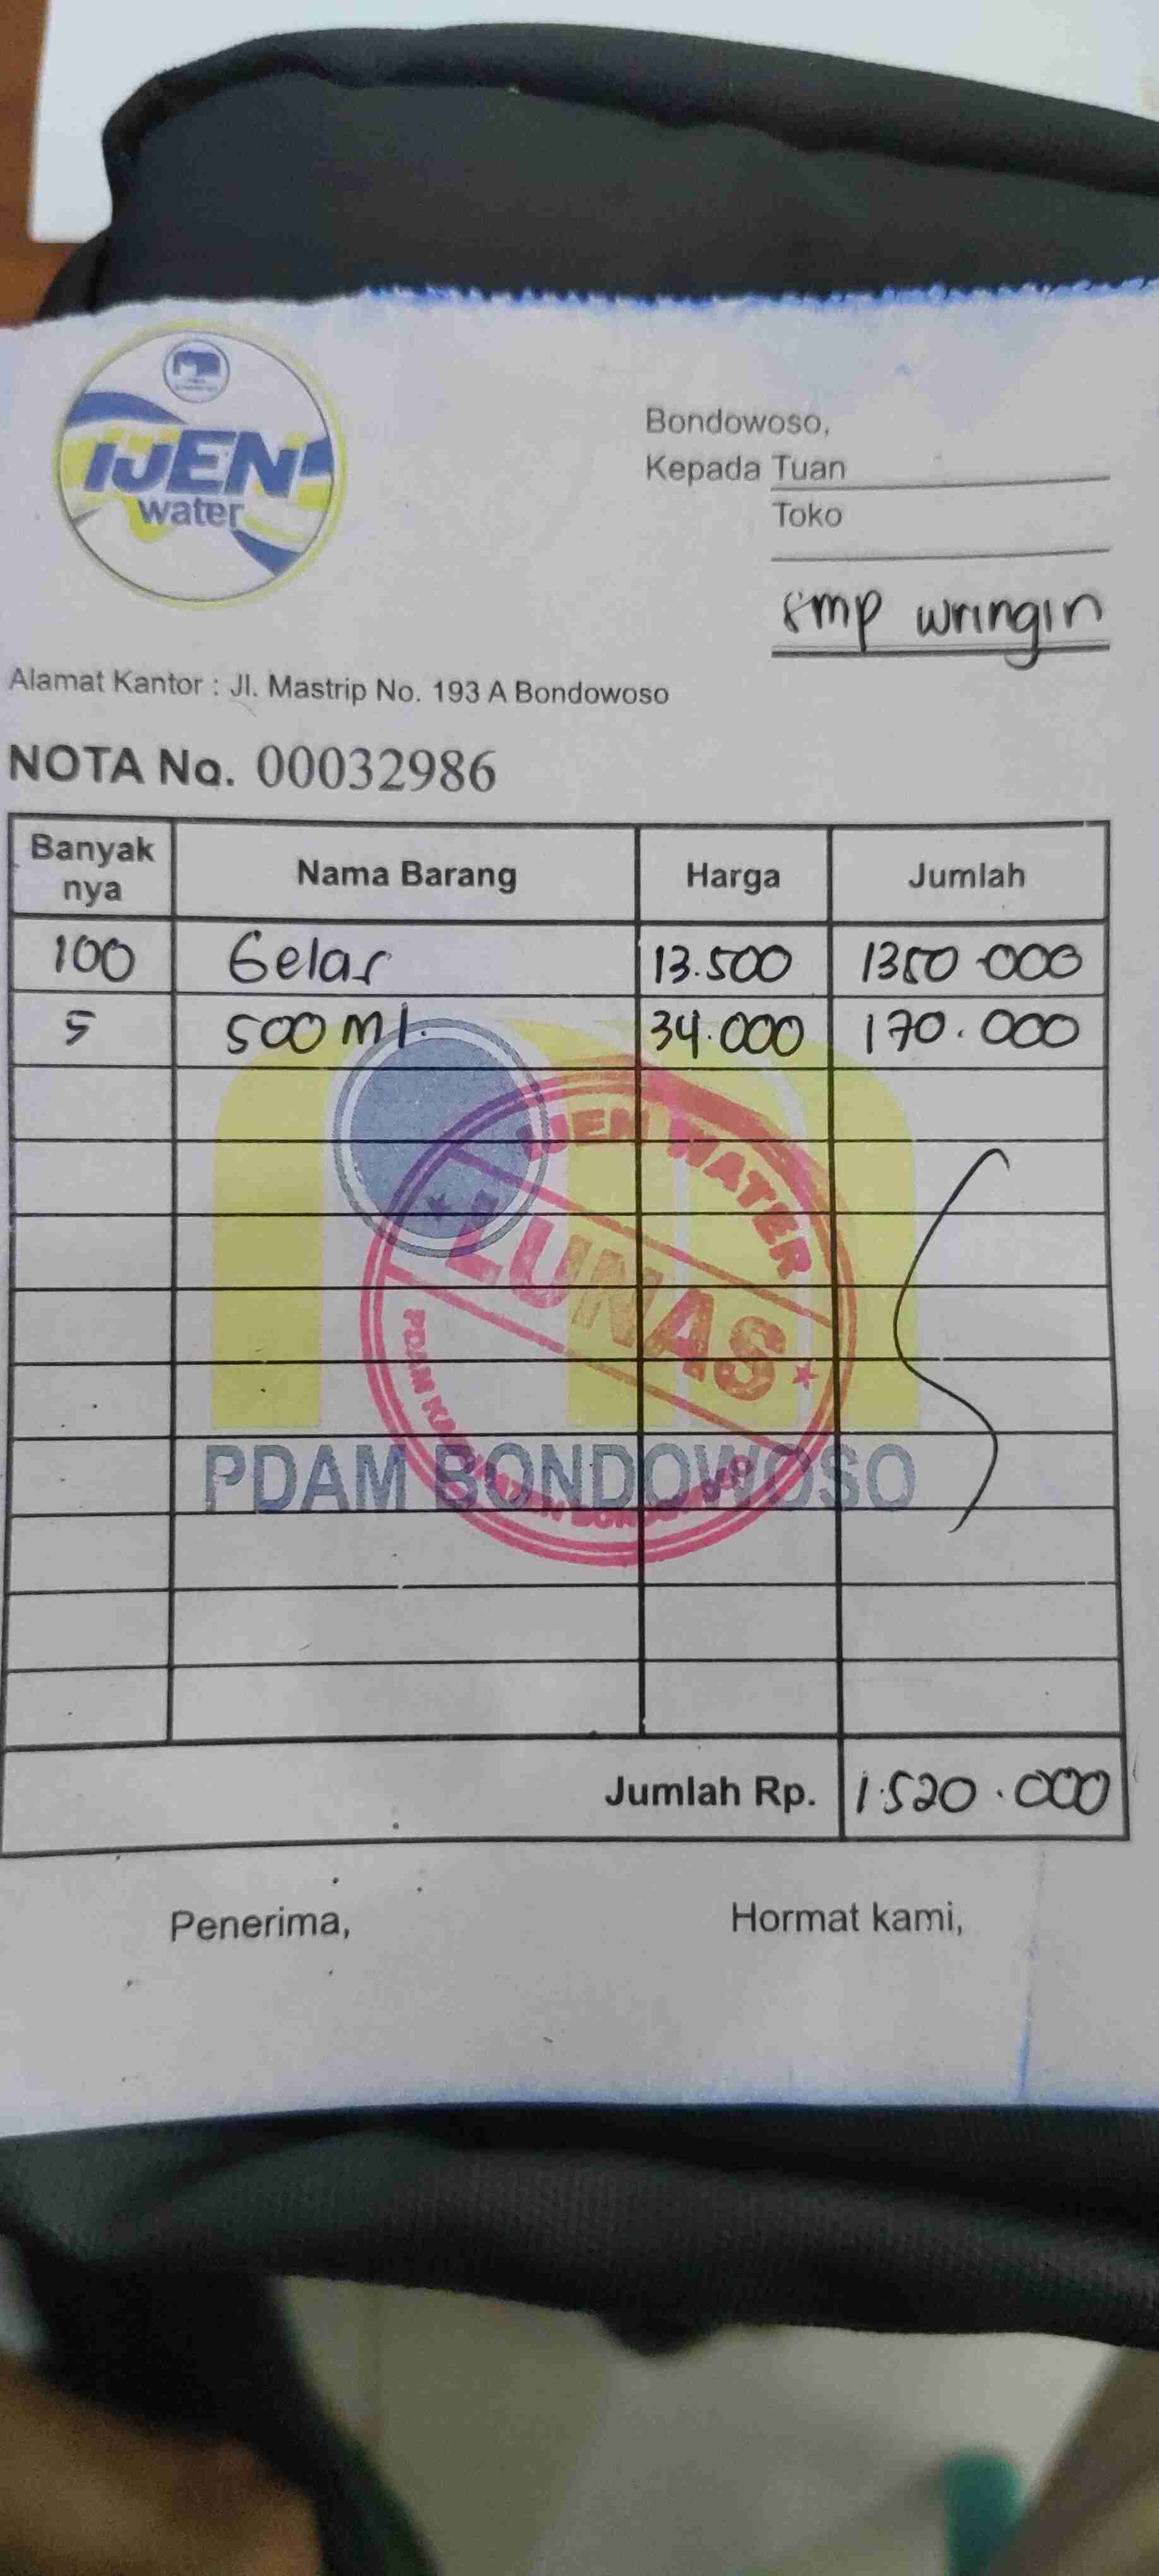 IJEN
water
Bondowoso,
Kepada Tuan
Toko
smp wringin
Alamat Kantor : Jl. Mastrip No. 193 A Bondowoso
NOTA No. 00032986
Banyak nya Nama Barang Harga Jumlah
100 Gelas 13.500 1350.000
5 500 ml. 34.000 170.000
IJEN WATER
LUNAS
PDAM BONDOWOSO
Jumlah Rp. 1.520.000
Penerima, Hormat kami,